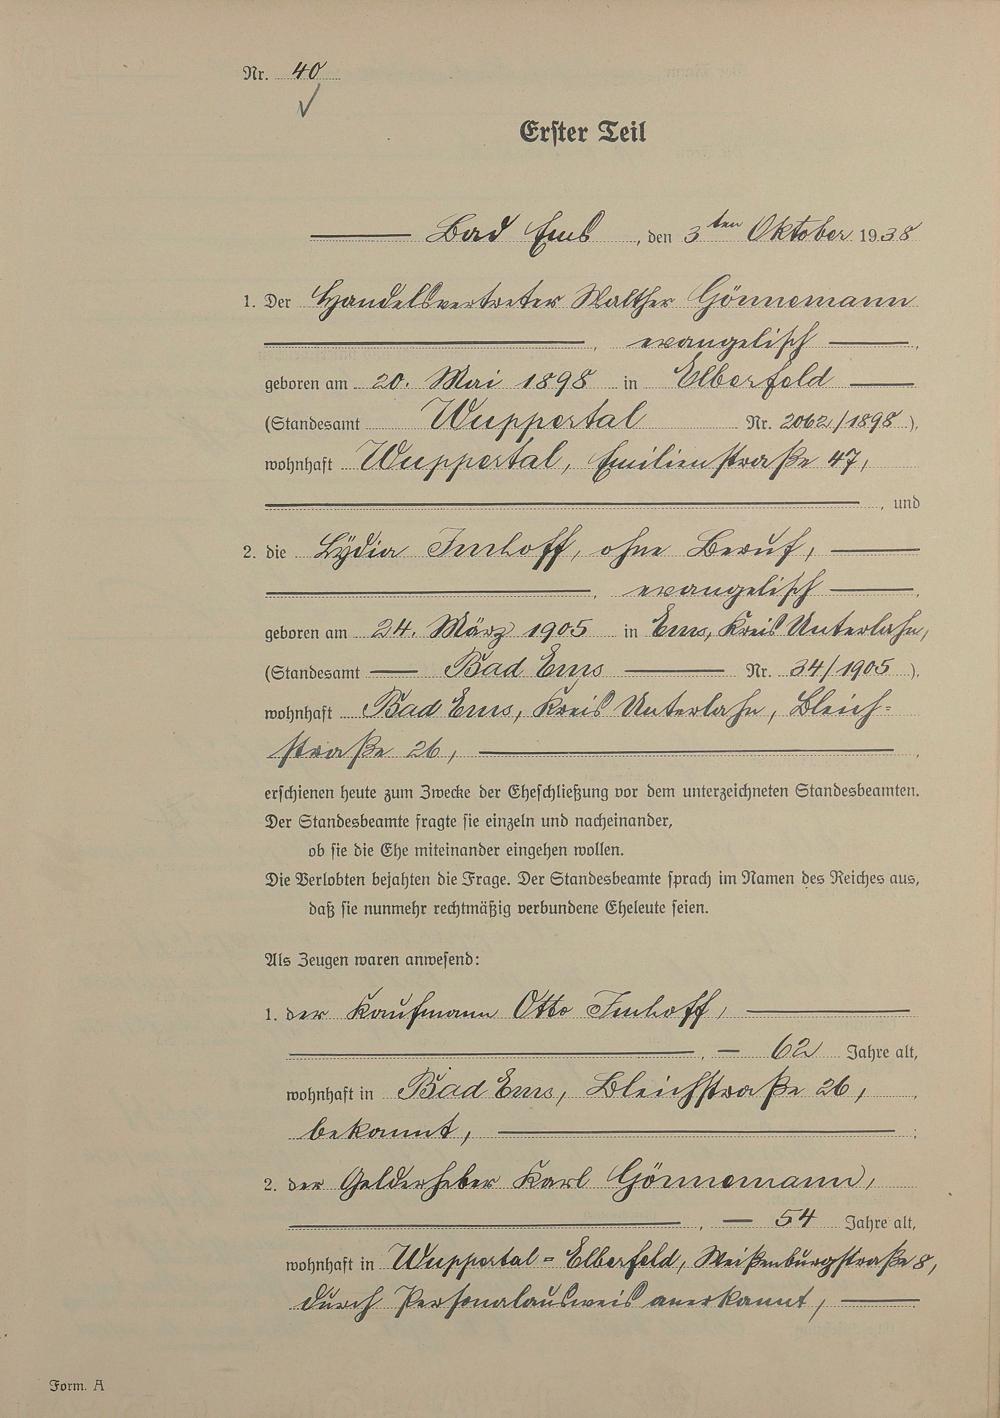 Nr. 40
Erster Teil
Bad Ems, den 3ten Oktober 1938
1. Der Handelsvertreter Walther Gönnemann
, evangelisch,
geboren am 20. Mai 1898 in Elberfeld
(Standesamt Wuppertal Nr. 2062/1898),
wohnhaft Wuppertal, Emilienstraße 47,
, und
2. die Lydia Imhoff, ohne Beruf,
, evangelisch,
geboren am 24. März 1905 in Ems, Kreis Unterlahn,
(Standesamt Bad Ems Nr. 34/1905),
wohnhaft Bad Ems, Kreis Unterlahn, Bleich-
straße 26,
erschienen heute zum Zwecke der Eheschließung vor dem unterzeichneten Standesbeamten.
Der Standesbeamte fragte sie einzeln und nacheinander,
ob sie die Ehe miteinander eingehen wollen.
Die Verlobten bejahten die Frage. Der Standesbeamte sprach im Namen des Reiches aus,
daß sie nunmehr rechtmäßig verbundene Eheleute seien.
Als Zeugen waren anwesend:
1. der Kaufmann Otto Imhoff,
, 62 Jahre alt,
wohnhaft in Bad Ems, Bleichstraße 26,
bekannt, ;
2. der Gelderheber Karl Gönnemann,
, 54 Jahre alt,
wohnhaft in Wuppertal-Elberfeld, Weißenburgstraße 8,
durch Personalausweis anerkannt,
Form. A